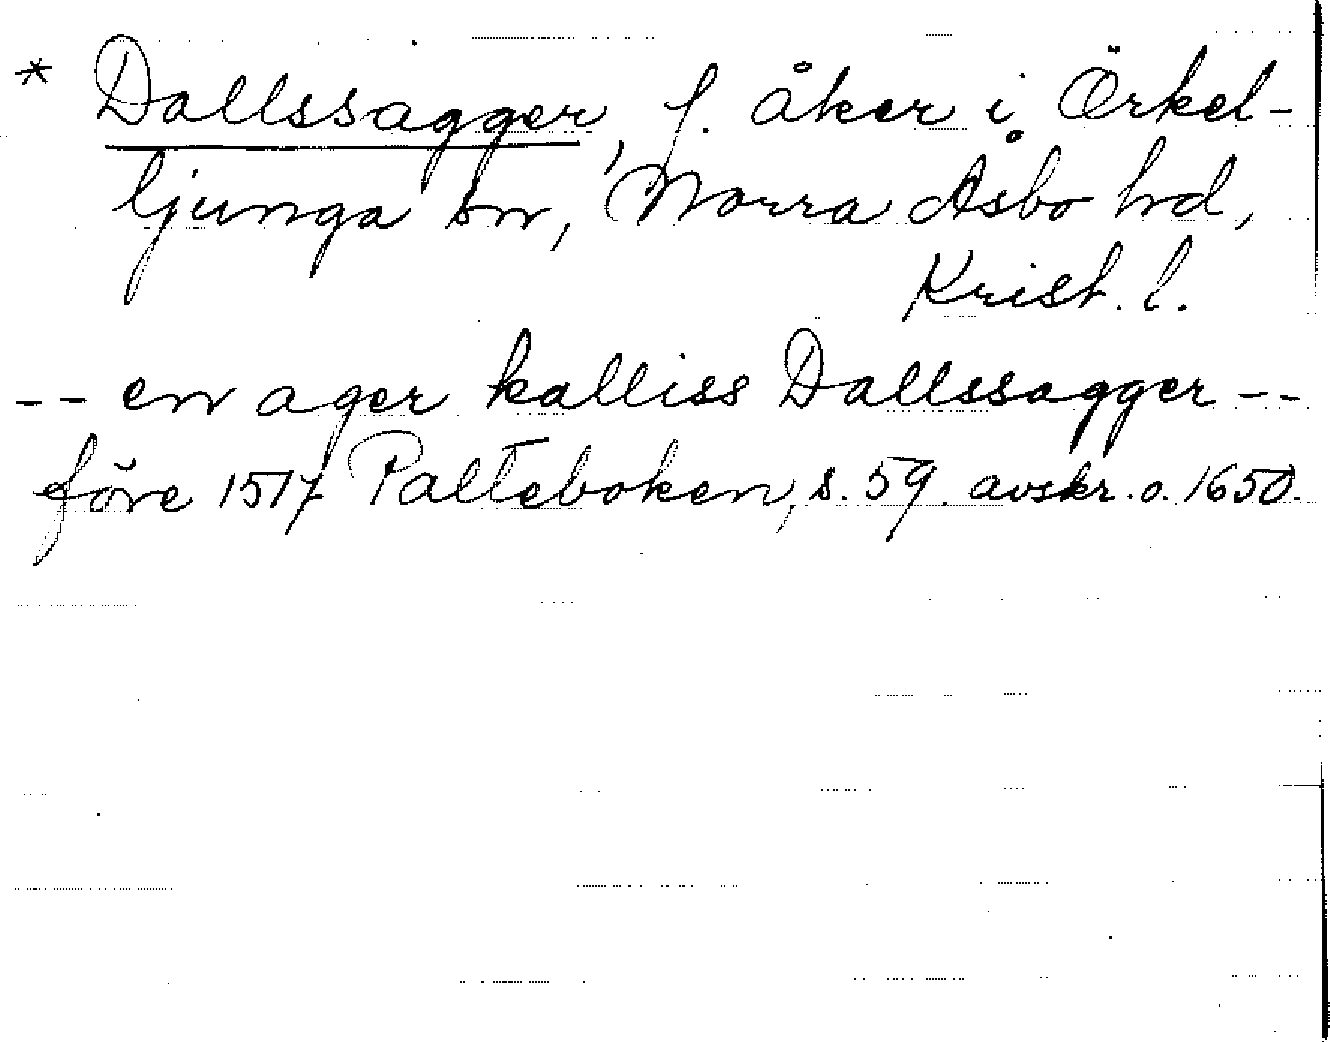 * Dallssagger, f. åker i Örkel-
ljunga sn, Norra Åsbo hd,
Krist. l.
-- en ager kalliss Dallssagger --
före 1517 Palteboken, s. 59. avskr. o. 1650.